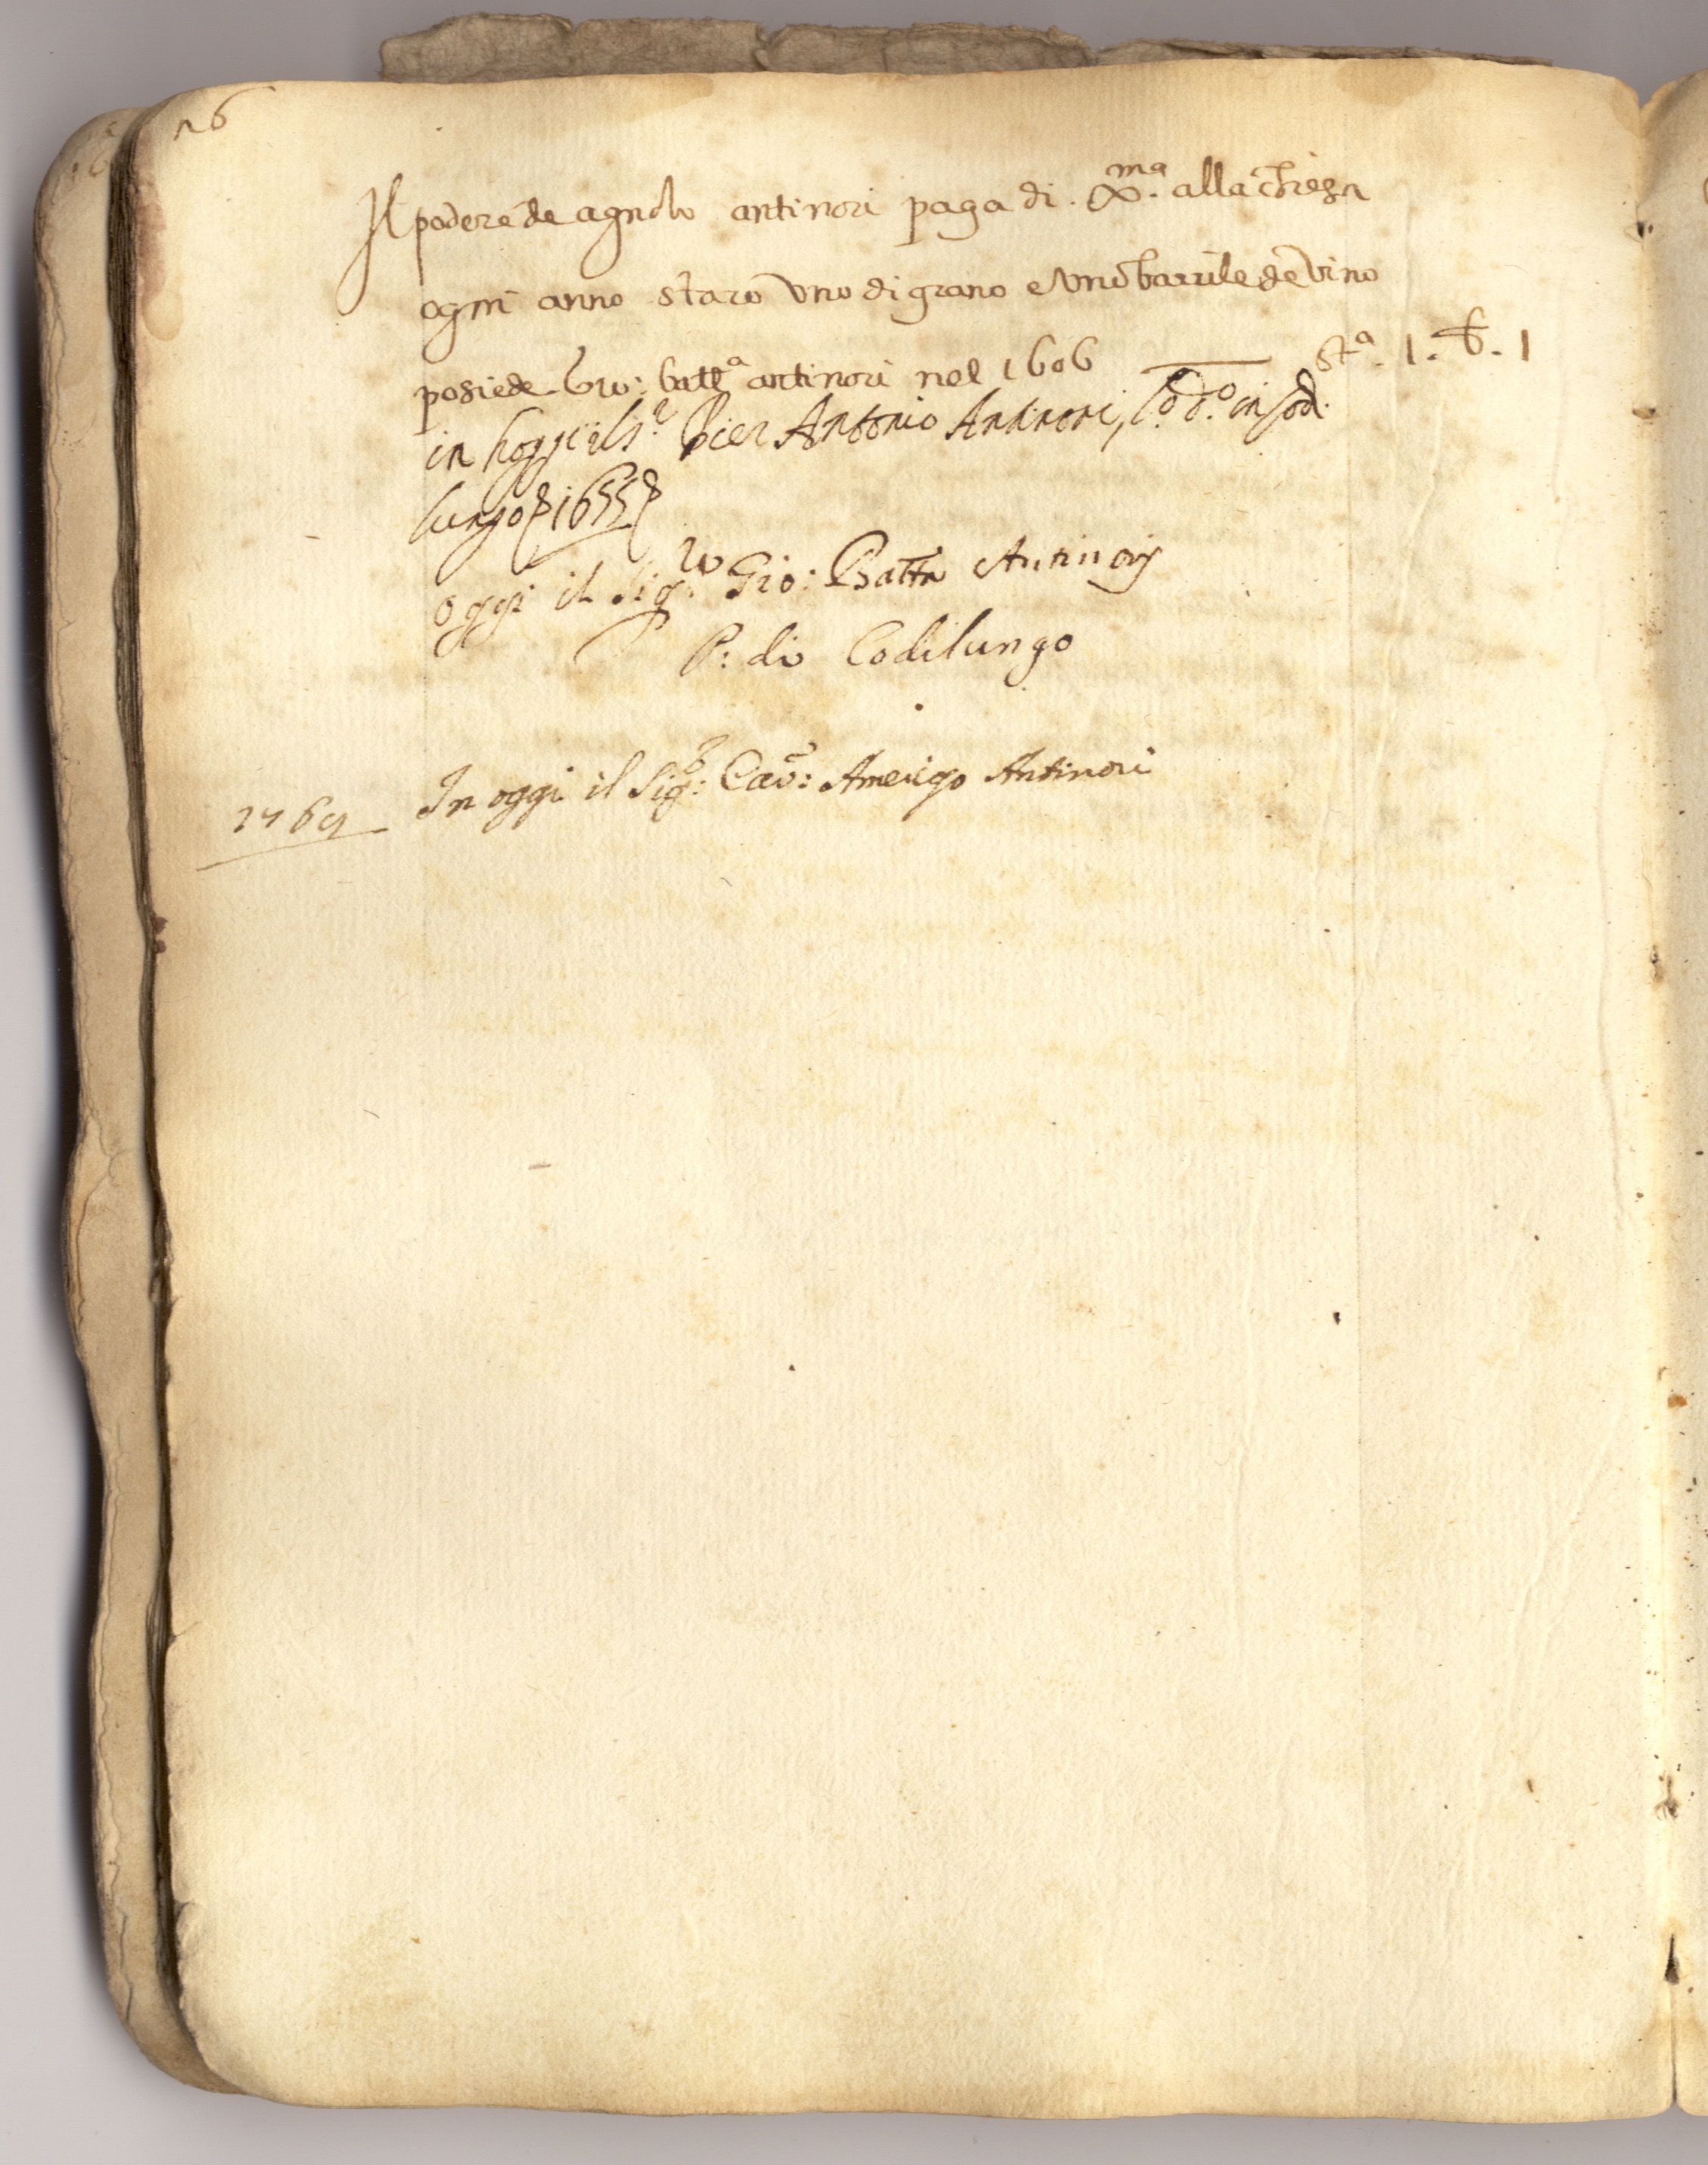 16
Il podere de agnolo antinori paga di Xma. alla chiesa
ogni anno staro uno di grano e uno barrile de vino
posiede Gio: batta antinori nel 1606 Sta. 1. b. 1
in hoggi il Sr. Pier Antonio Antinori, in Cod.
lungo 1655
oggi il Sigre Gio: Batta Antinorj
P: di Codilungo
1769 In oggi il Sigr: Cav: Amerigo Antinori